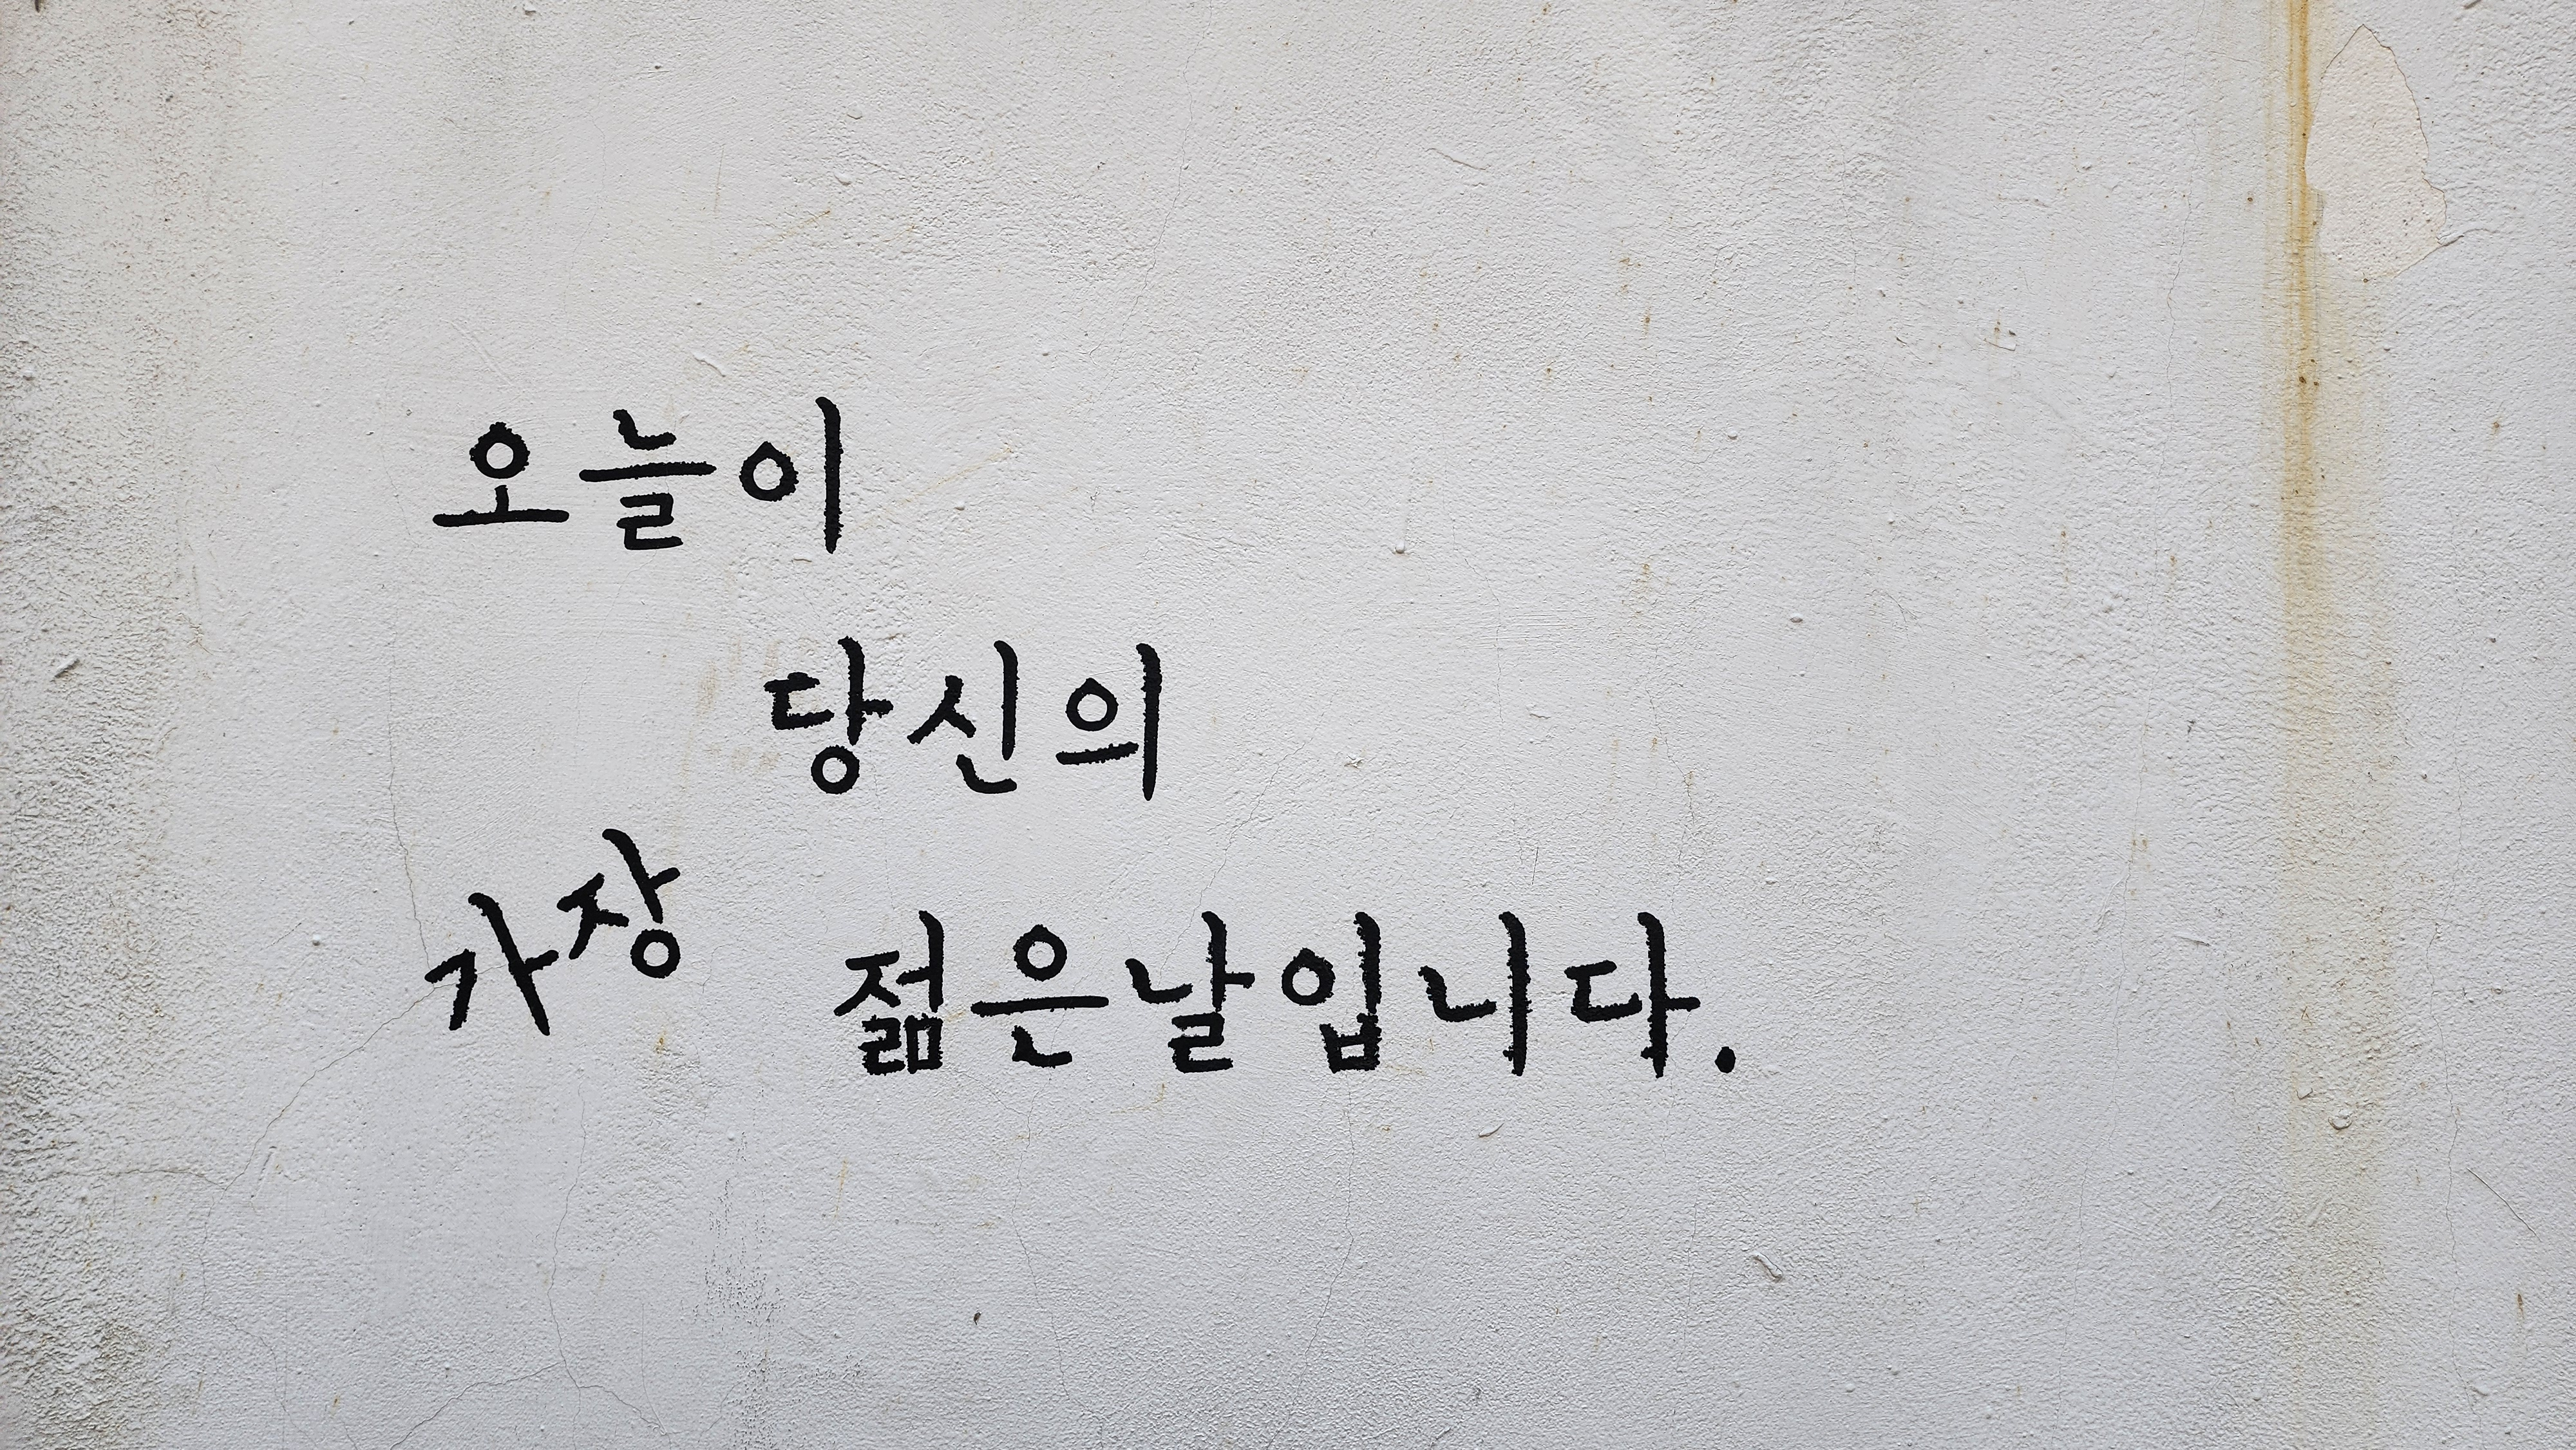 오늘이
당신의
가장 젊은날입니다.